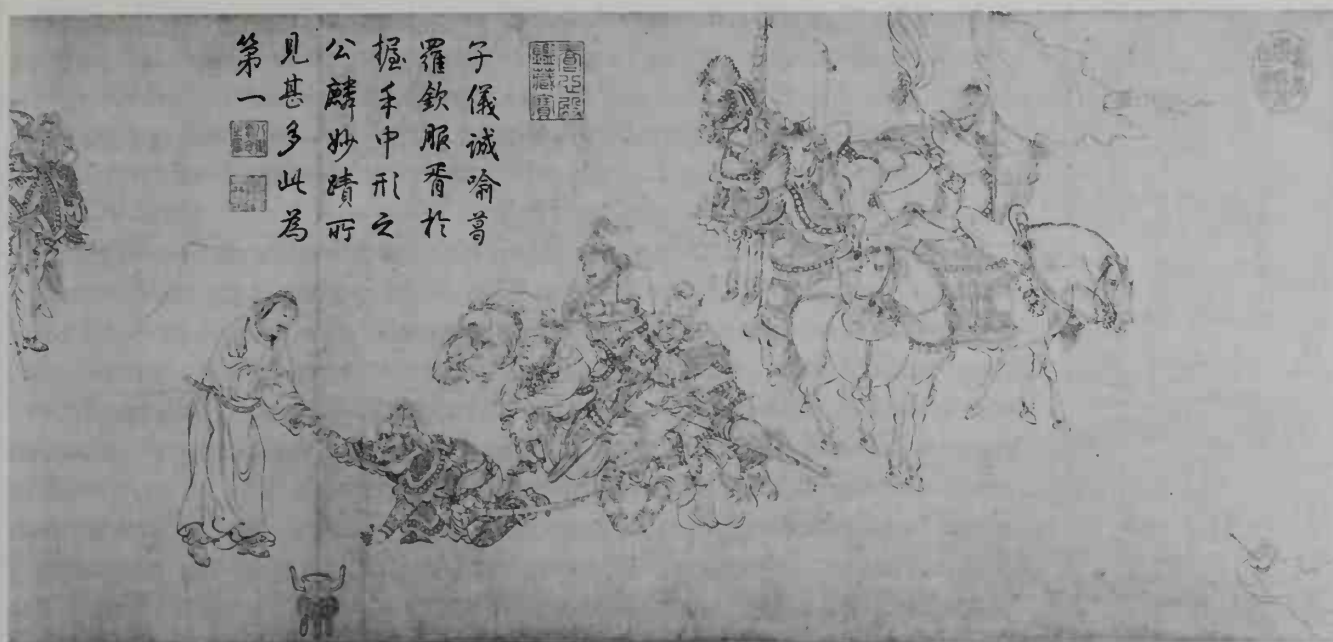 子儀誠喻菖
羅欽服胥於
握手中形之
公麟妙蹟所
見甚多此為
第一